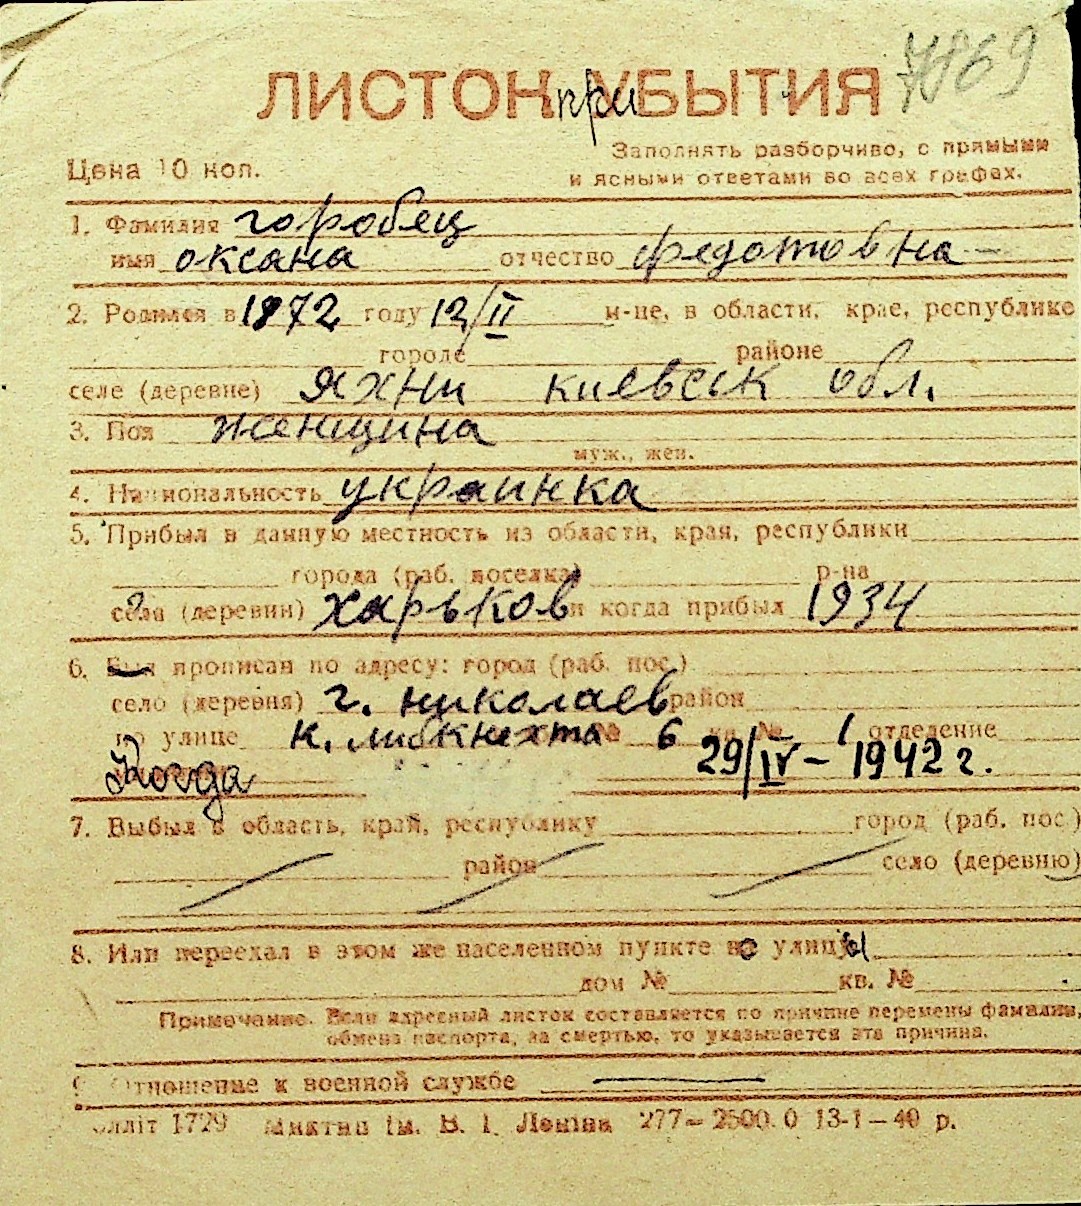 7869
ЛИСТОК при УБЫТИЯ
Заполнять разборчиво, с прямыми
Цена 10 коп.
и ясными ответами во всех графах.
1. Фамилия горобец
имя оксана отчество федотовна
2. Родился в 1872 году 12/II м-це, в области, крае, республике
городе районе
селе (деревне) яхни киевск обл.
3. Пол женщина
муж., жен.
4. Национальность украинка
5. Прибыл в данную местность из области, края, республики
города (раб. поселка) р-на
села (деревни) г харьков и когда прибыл 1934
6. Был прописан по адресу: город (раб. пос.)
село (деревня) г. николаев район
по улице к. либкнехта № 6 кв. № 1 отделение
Когда 29/IV – 1942 г.
7. Выбыл в область, край, республику город (раб. пос.)
район село (деревню)
8. Или переехал в этом же населенном пункте со улицы
дом № кв. №
Примечание. Если адресный листок составляется по причине перемены фамилии,
обмена паспорта, за смертью, то указывается эта причина.
9. Отношение к военной службе
1729 ім. В. І. Леніна 277–2500.0 13-1–40 р.